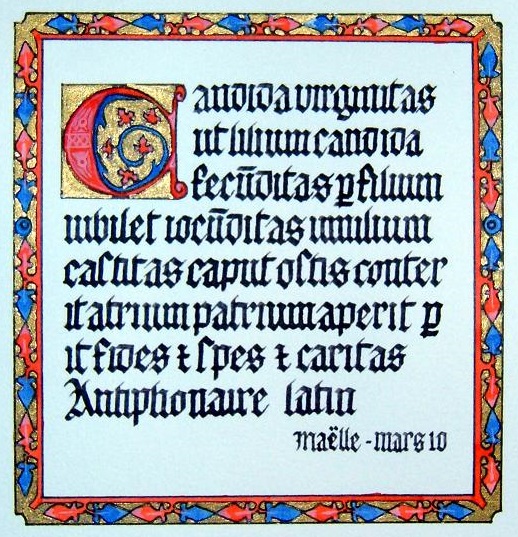 Candida virginitas
ut lilium candida
fecūditas ꝑ filium
iubilet iocūditas
caſtitas caput oſtis conter
it atrium patrium aperit ꝑ
it fides ⁊ ſpes ⁊ caritas
Antiphonaire latin
maëlle - mars 10